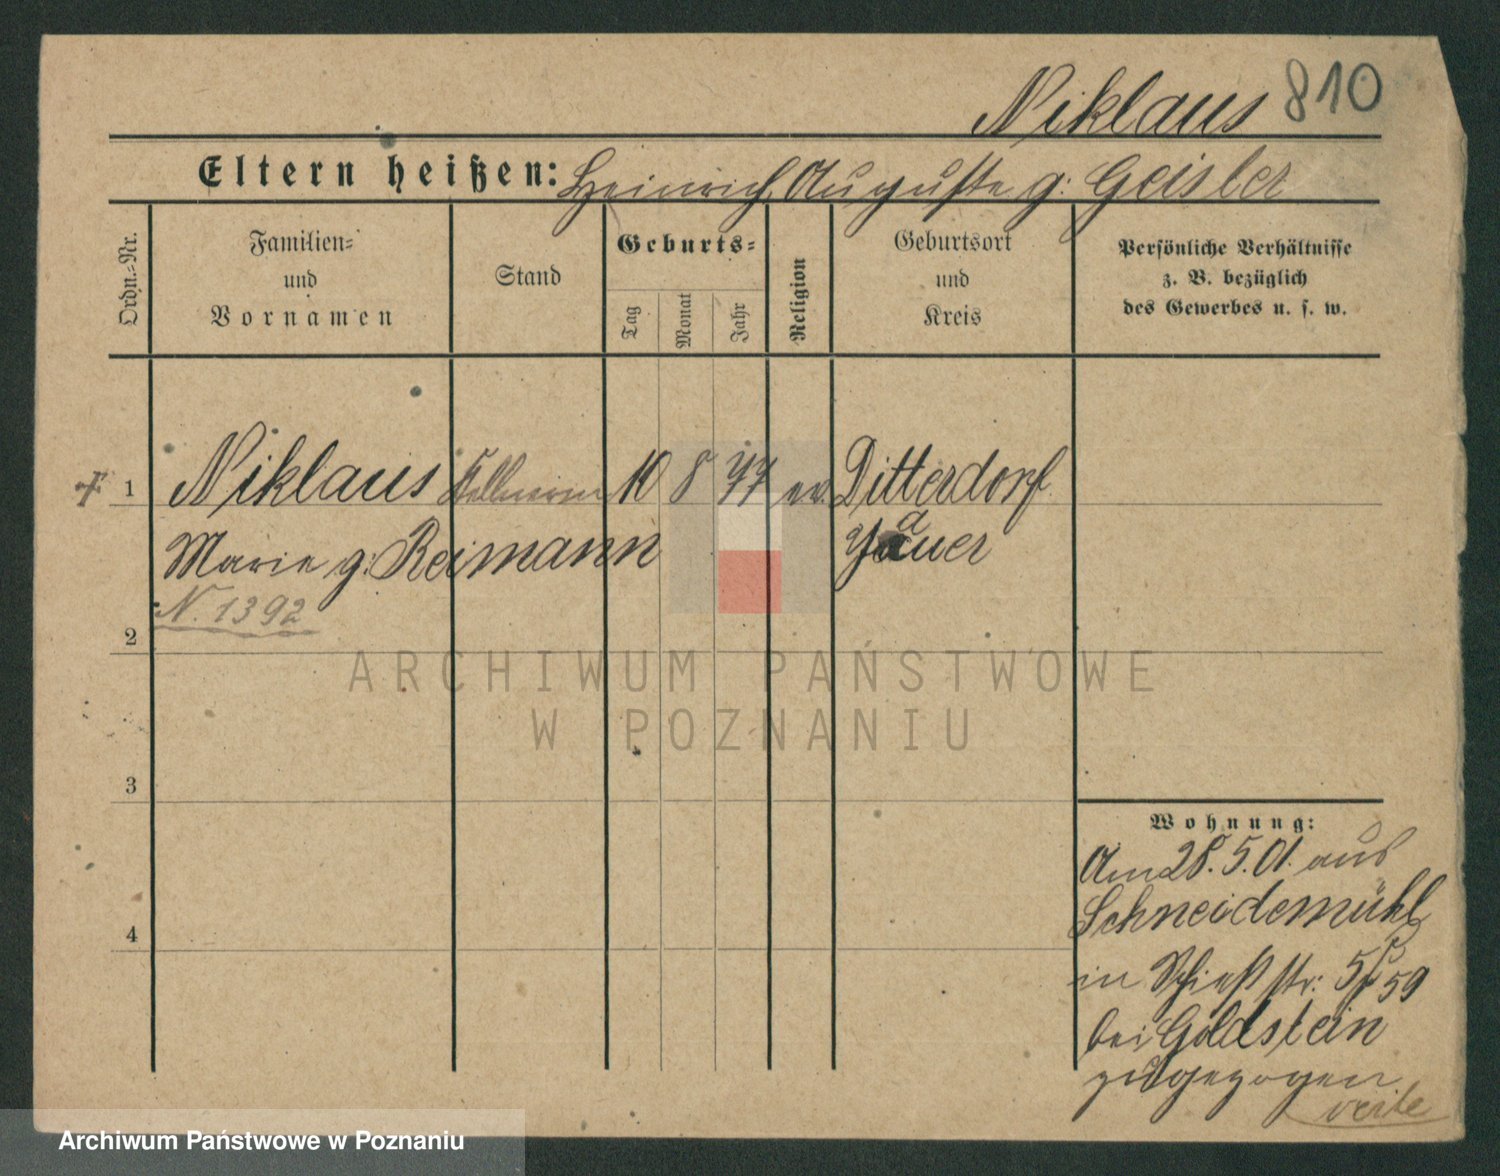 Niklaus 810
Eltern heißen: Heinrich, Auguste g: Geisler
Ordn.-Nr.
Familien-
und
Vornamen
Stand
Geburts-
Tag
Monat
Jahr
Religion
Geburtsort
und
Kreis
Persönliche Verhältnisse
z. B. bezüglich
des Gewerbes u. s. w.
1 Niklaus Kellnerin 10 8 77 ev. Ditterdorf
Marie g: Reimann Jauer
N. 1392
2
ARCHIWUM PAŃSTWOWE
W POZNANIU
3
4
Wohnung:
Am 28.5.01. aus
Schneidemühl
in Schießstr: 59
bei Goldstein
zugezogen
Archiwum Państwowe w Poznaniu